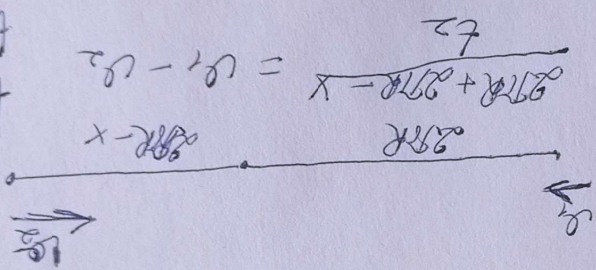 v₁ v₂
2πR 2πR - x
2πR + 2πR - x
t₂
= v₁ - v₂